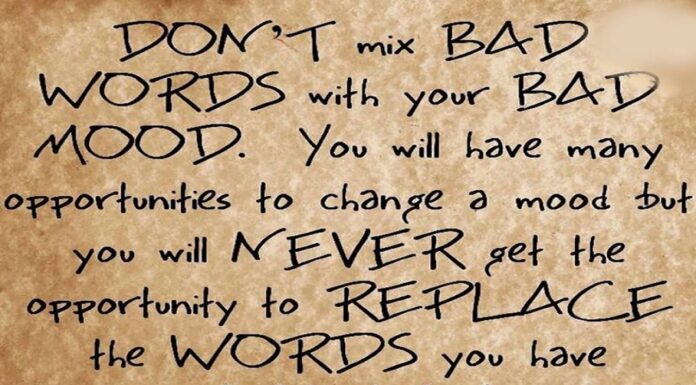 DON'T mix BAD
WORDS with your BAD
MOOD. You will have many
opportunities to change a mood but
you will NEVER get the
opportunity to REPLACE
the WORDS you have